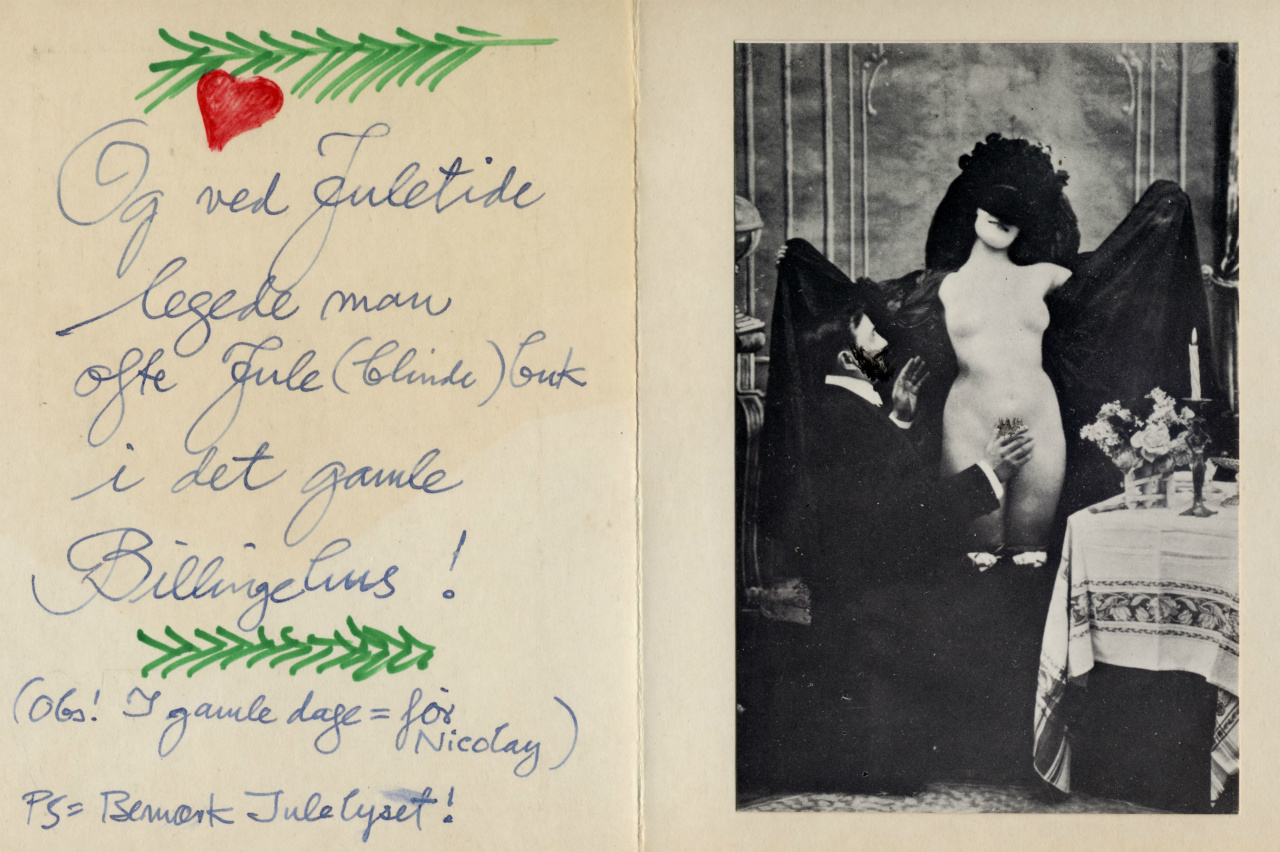 Og ved Juletide
legede man
ofte Jule(blinde)buk
i det gamle
Billingehus!
(Obs! I gamle dage = før
Nicolay)
PS= Bemærk Julelyset!